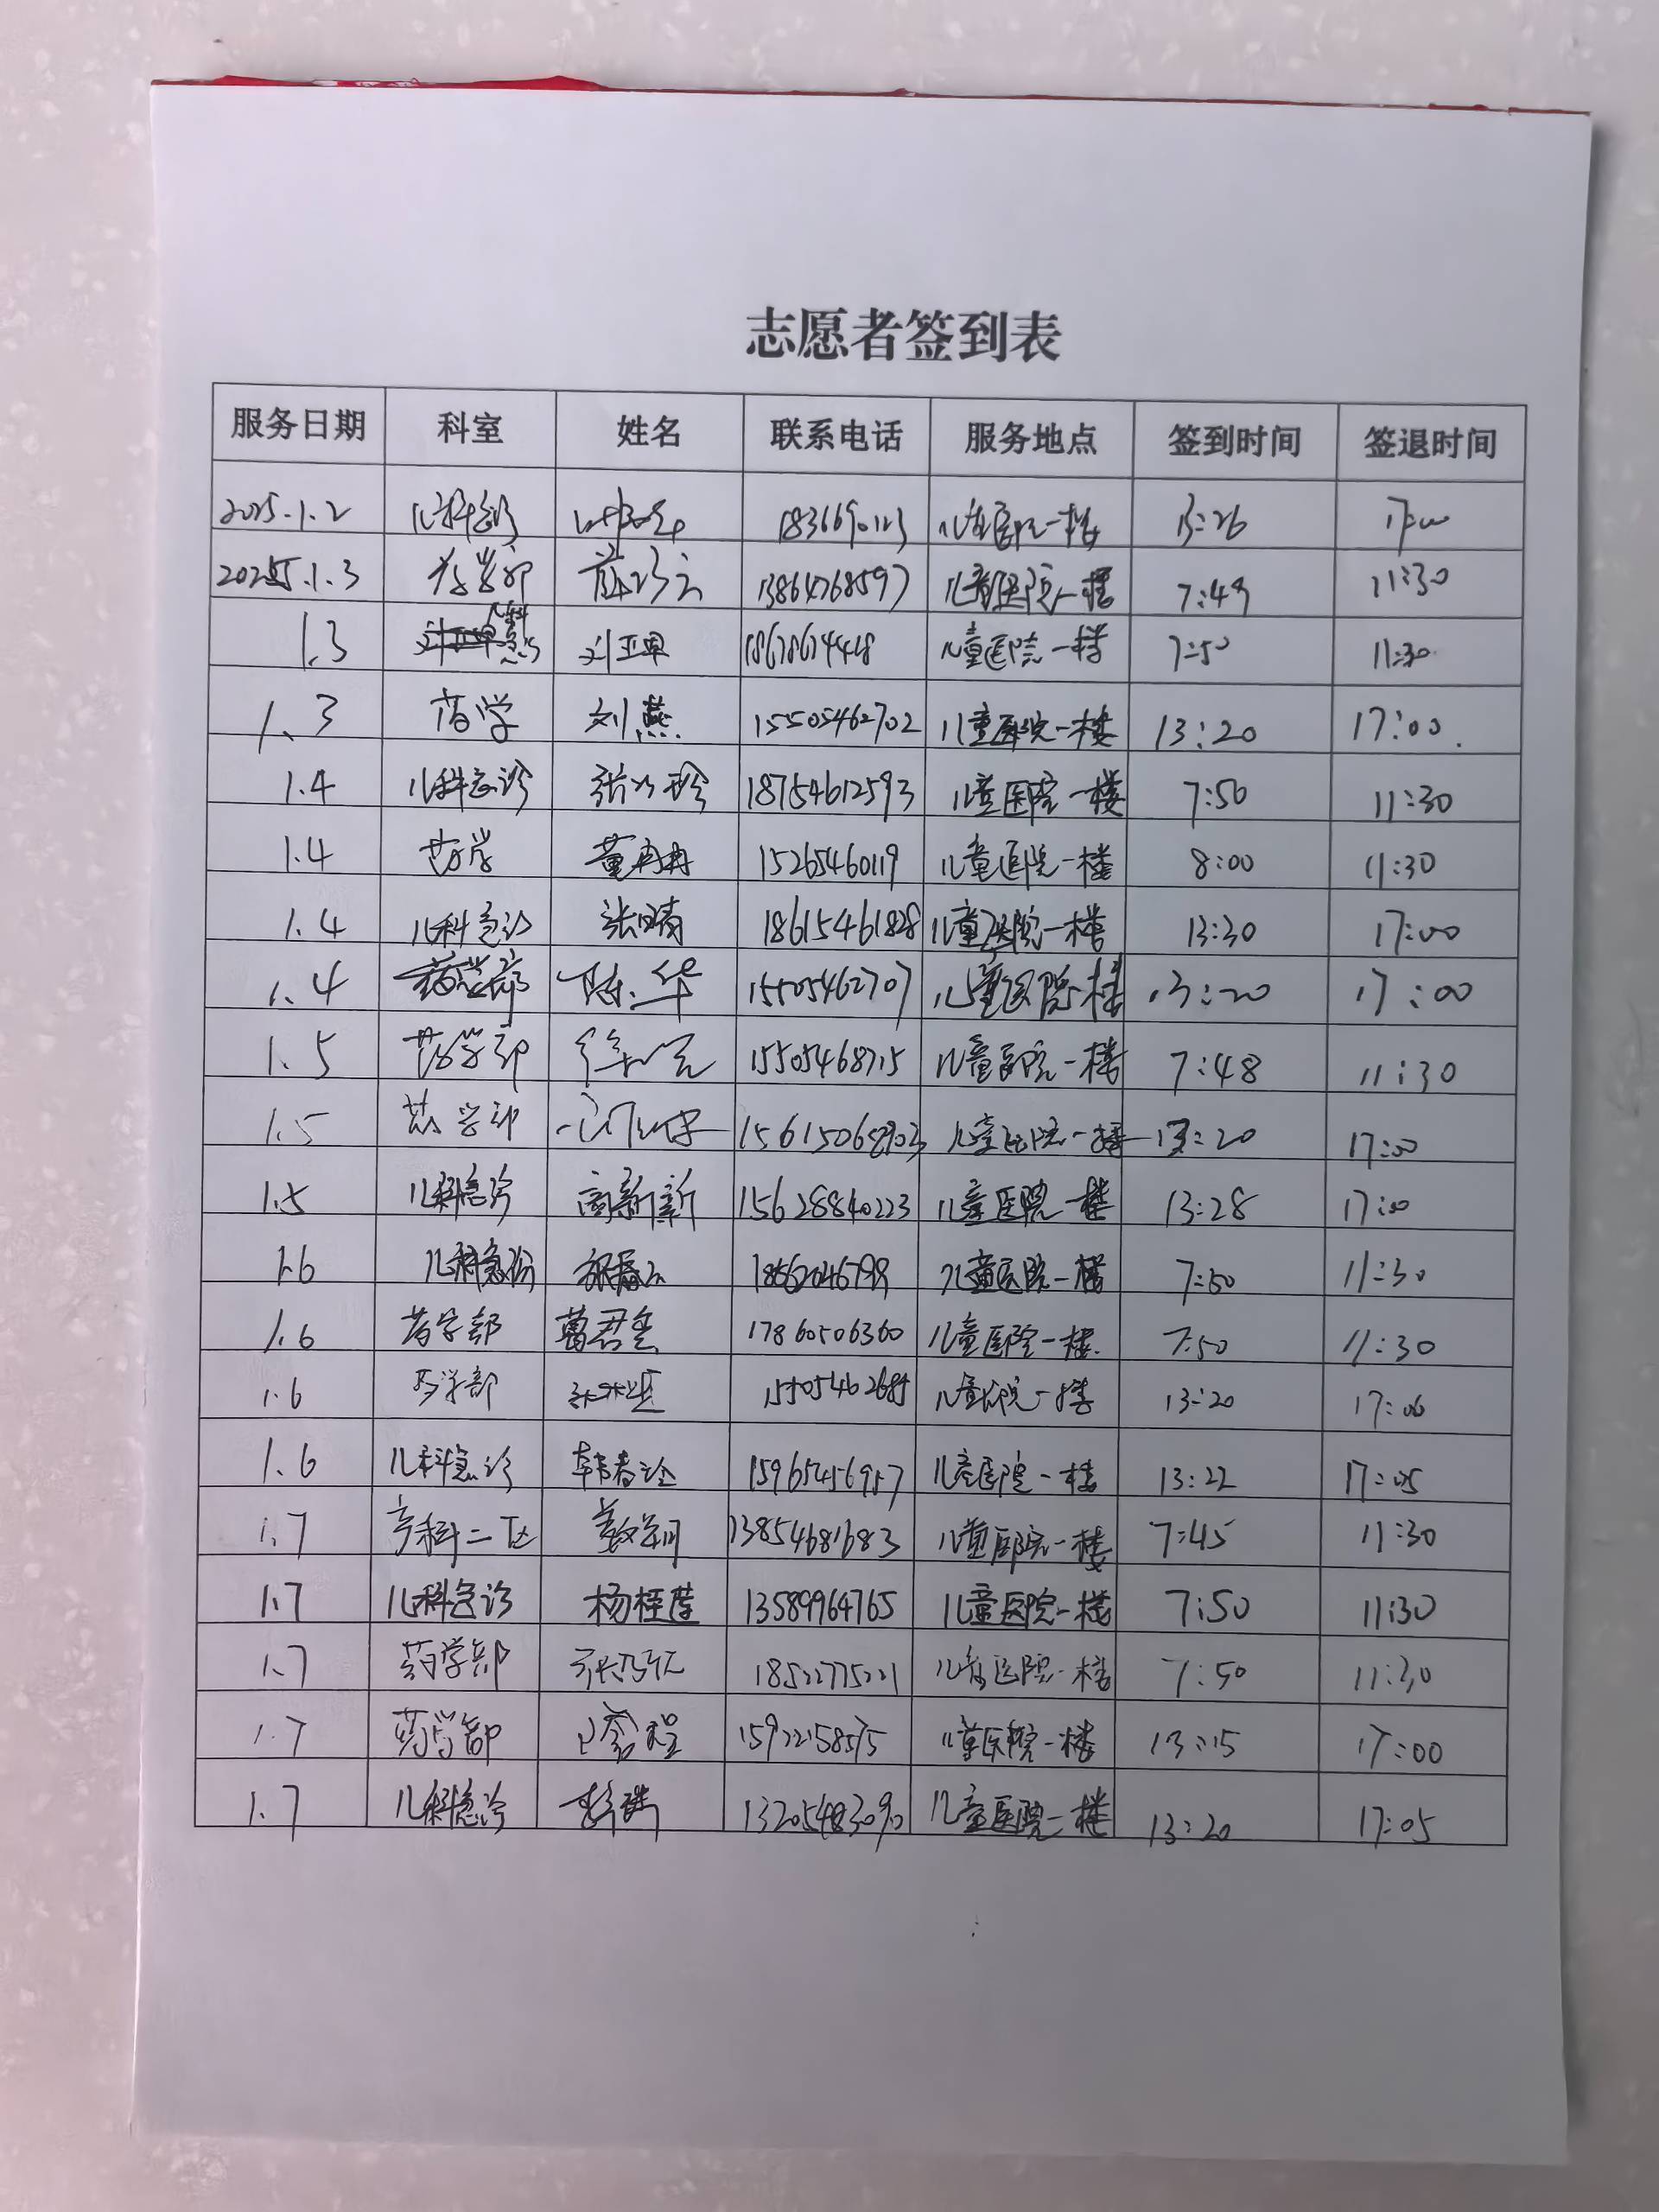 志愿者签到表
服务日期 科室 姓名 联系电话 服务地点 签到时间 签退时间
2025.1.2 儿科急诊 儿童医院一楼 13:26 17:00
2025.1.3 药学部 13864768597 儿童医院一楼 7:49 11:30
1.3 儿科急诊 18678674448 儿童医院一楼 7:50 11:30
1.3 药学 刘燕 15505462702 儿童医院一楼 13:20 17:00
1.4 儿科急诊 18754612593 儿童医院一楼 7:50 11:30
1.4 药学 董冉冉 15265460119 儿童医院一楼 8:00 11:30
1.4 儿科急诊 张晴 18615461828 儿童医院一楼 13:30 17:00
1.4 药学部 陈华 15505462707 儿童医院一楼 13:20 17:00
1.5 药学部 15505468715 儿童医院一楼 7:48 11:30
1.5 药学部 儿童医院一楼 13:20 17:00
1.5 儿科急诊 商新新 15628840223 儿童医院一楼 13:28 17:00
1.6 儿科急诊 18662046799 儿童医院一楼 7:50 11:30
1.6 药学部 17860506360 儿童医院一楼 7:50 11:30
1.6 药学部 15505462685 儿童医院一楼 13:20 17:00
1.6 儿科急诊 15965456957 儿童医院一楼 13:22 17:05
1.7 产科二区 13854681683 儿童医院一楼 7:45 11:30
1.7 儿科急诊 13589964765 儿童医院一楼 7:50 11:30
1.7 药学部 18522775221 儿童医院一楼 7:50 11:30
1.7 药学部 15922158575 儿童医院一楼 13:15 17:00
1.7 儿科急诊 13205483090 儿童医院一楼 13:20 17:05